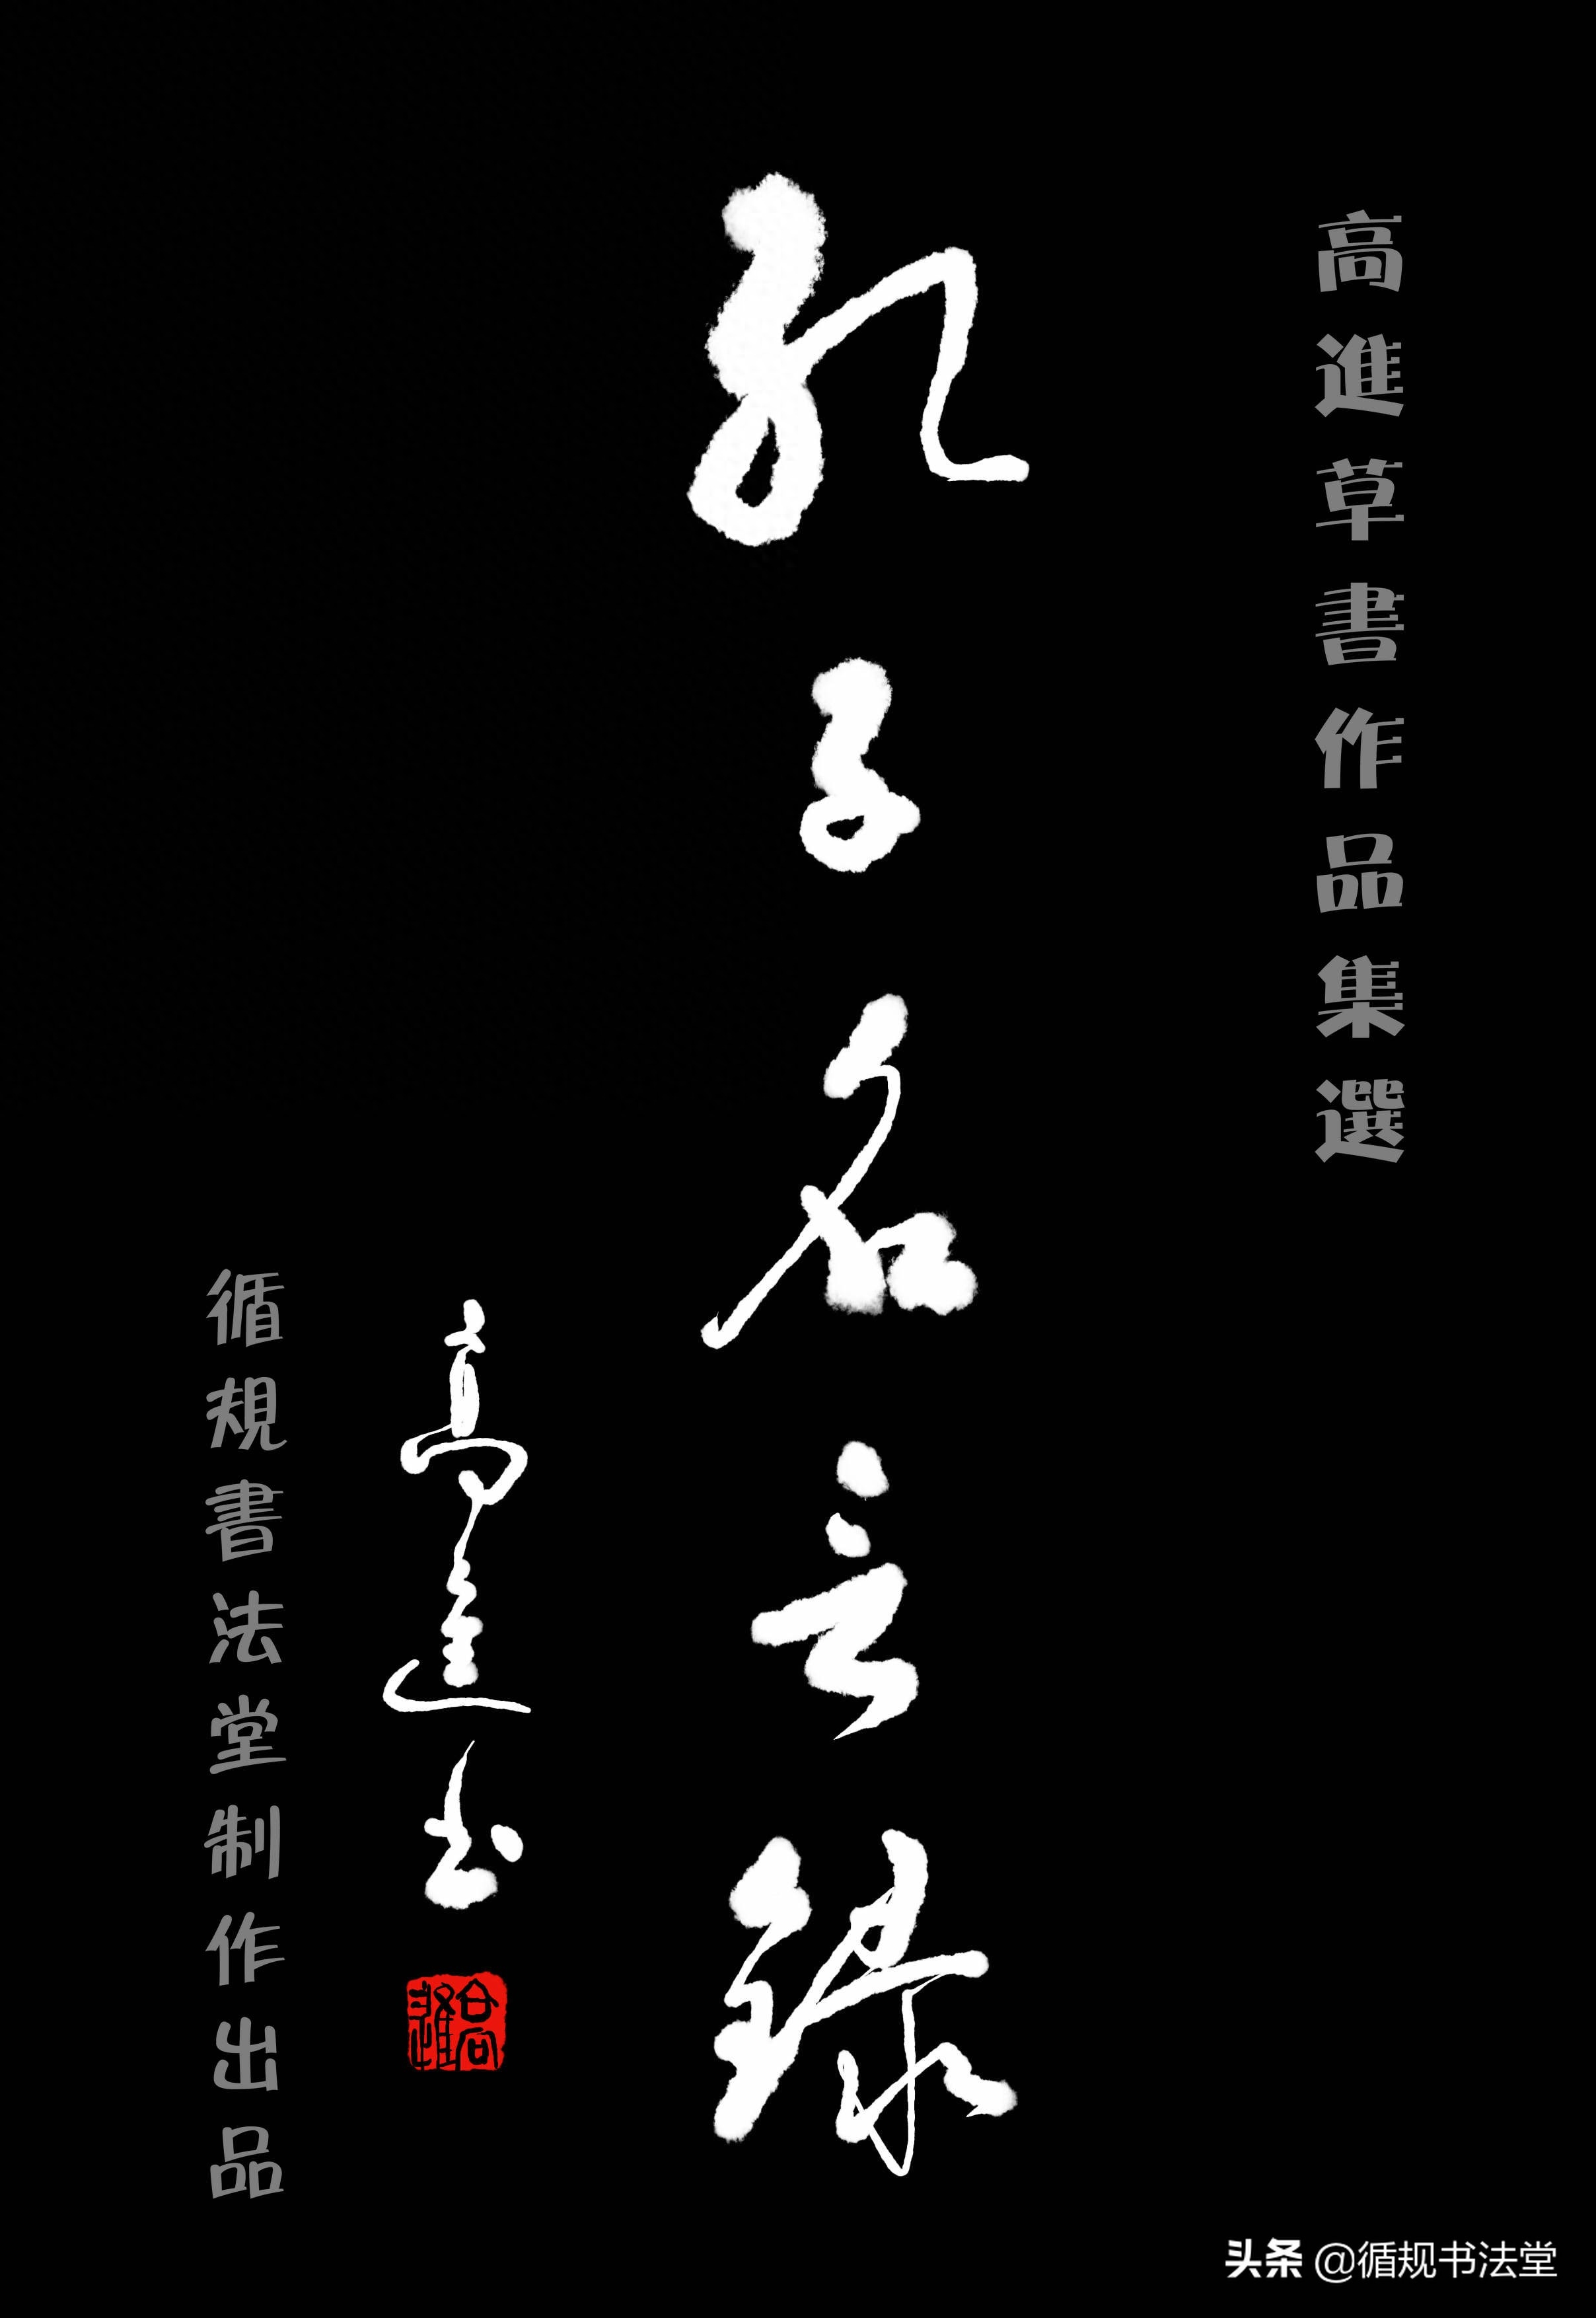 高進草書作品集選
孔子名言錄
高進书
循規書法堂制作出品
头条 @循规书法堂